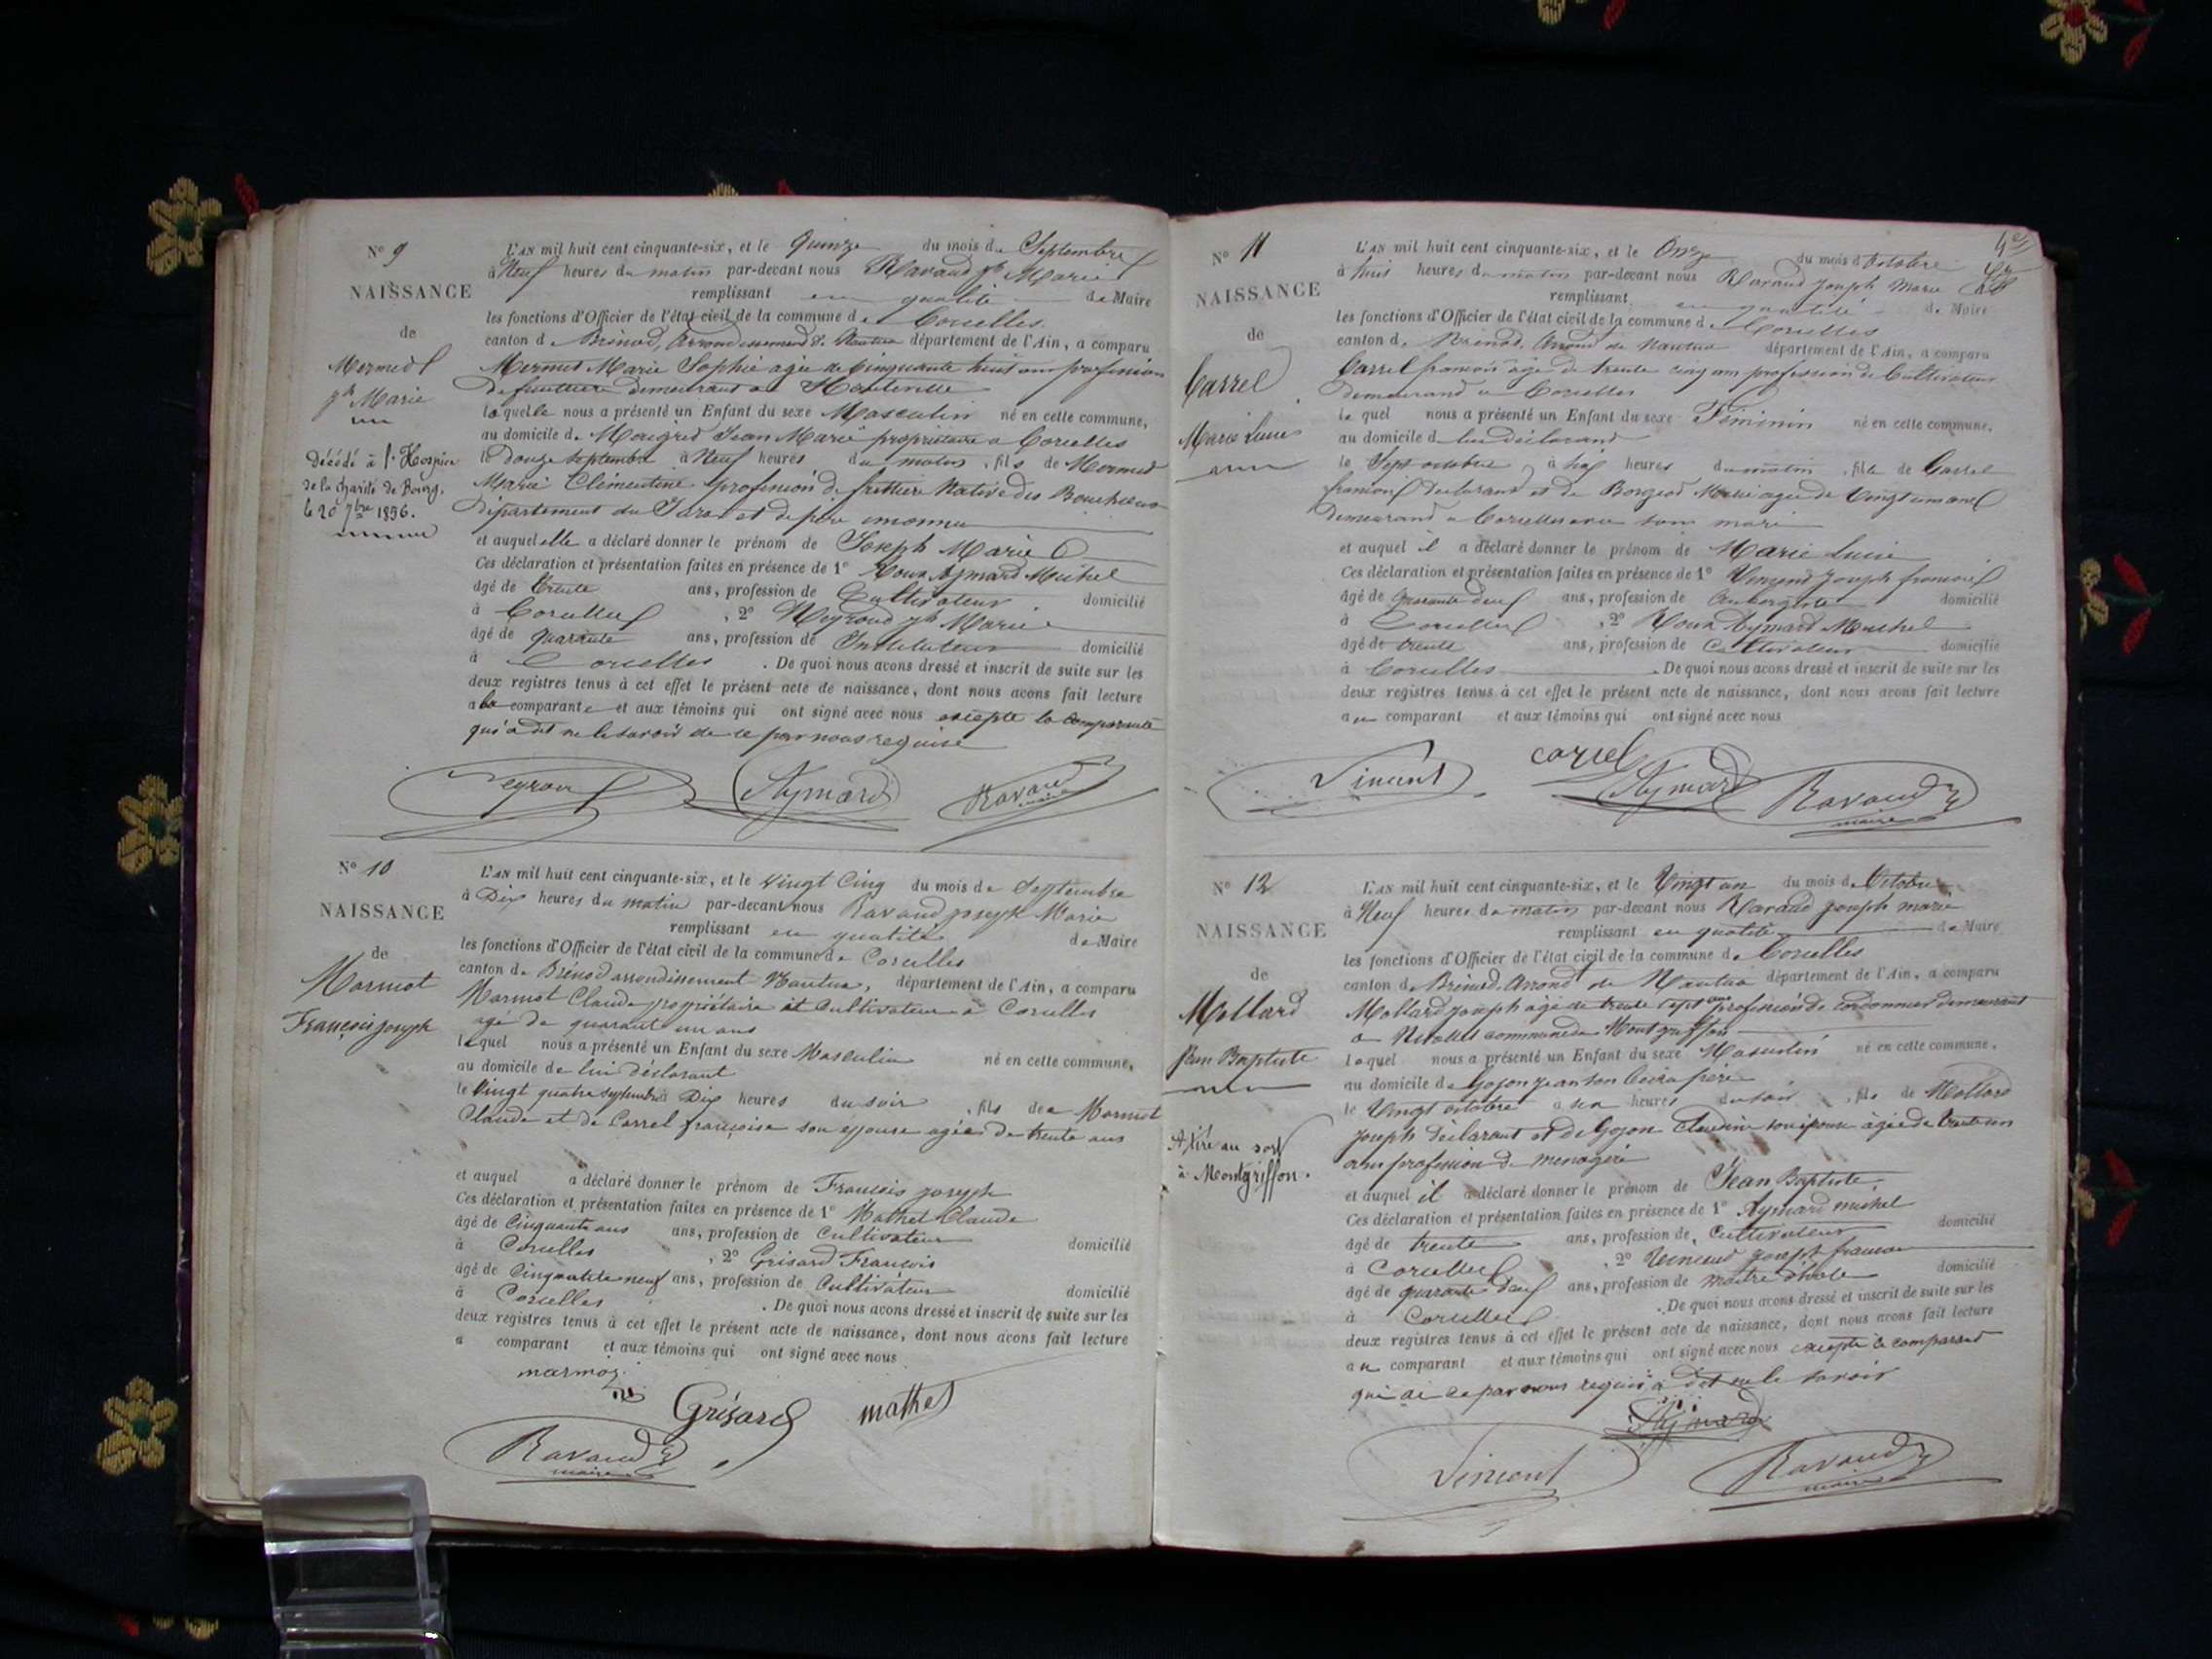 N° 9
NAISSANCE
de
Mermet
jh Marie
décédé à l'Hospice
de la charité de Bourg,
le 20 7bre 1856.
L'AN mil huit cent cinquante-six, et le Quinze du mois de Septembre
à Neuf heures du matin par-devant nous Ravaud jh Marie
remplissant en qualité de Maire
les fonctions d'Officier de l'état civil de la commune de Corcelles
canton de Brénod, Arrondissement de Nantua département de l'Ain, a comparu
Mermet Marie Sophie agée de Cinquante huit ans profession
de fruitiere demeurant a Hauteville
laquelle nous a présenté un Enfant du sexe Masculin né en cette commune,
au domicile de Maigred Jean Marie propriétaire a Corcelles
le douze septembre à Neuf heures du matin, fils de Mermet
Marie Clémentine profession de fruitiere Native des Bouchoux
département du Jura et de père inconnu
et auquel elle a déclaré donner le prénom de Joseph Marie
Ces déclaration et présentation faites en présence de 1° Roux Aymard Michel
âgé de Trente ans, profession de Cultivateur domicilié
à Corcelles, 2° Neyroud jh Marie
âgé de quarante ans, profession de Instituteur domicilié
à Corcelles. De quoi nous avons dressé et inscrit de suite sur les
deux registres tenus à cet effet le présent acte de naissance, dont nous avons fait lecture
a la comparante et aux témoins qui ont signé avec nous excepte la Comparante
qui a dit ne le savoir de ce par nous requise
Neyrou Aymard Ravaud
maire
N° 10
NAISSANCE
de
Marmot
François joseph
L'AN mil huit cent cinquante-six, et le vingt Cinq du mois de Septembre
à Dix heures du matin par-devant nous Ravaud joseph Marie
remplissant en qualité de Maire
les fonctions d'Officier de l'état civil de la commune de Corcelles
canton de Brénod arrondissement Nantua, département de l'Ain, a comparu
Marmot Claude propriétaire et Cultivateur a Corcelles
agé de quarante un ans
lequel nous a présenté un Enfant du sexe Masculin né en cette commune,
au domicile de lui déclarant
le Vingt quatre septembre à Dix heures du soir, fils de Marmot
Claude et de Carrel françoise son epouse agée de trente ans
et auquel a déclaré donner le prénom de François joseph
Ces déclaration et présentation faites en présence de 1° Mathet Claude
âgé de Cinquante ans ans, profession de Cultivateur domicilié
à Corcelles, 2° Grisard François
âgé de Cinquante neuf ans, profession de Cultivateur domicilié
à Corcelles. De quoi nous avons dressé et inscrit de suite sur les
deux registres tenus à cet effet le présent acte de naissance, dont nous avons fait lecture
a comparant et aux témoins qui ont signé avec nous
marmoz
Grisard mathet
Ravaud
maire
N° 11
NAISSANCE
de
Carrel
Marie Lucie
L'AN mil huit cent cinquante-six, et le Onze du mois d'Octobre
à huit heures du matin par-devant nous Ravaud joseph Marie
remplissant en qualité de Maire
les fonctions d'Officier de l'état civil de la commune de Corcelles
canton de Brénod, Arrond de Nantua département de l'Ain, a comparu
Carrel françois âgé de trente cinq ans profession de Cultivateur
demeurand a Corcelles
lequel nous a présenté un Enfant du sexe Féminin né en cette commune,
au domicile d lui déclarand
le Sept octobre à six heures du matin, fille de Carrel
françois declarant et de Borgeod Marie agée de Vingt un ans
demeurand a Corcelles avec son mari
et auquel il a déclaré donner le prénom de Marie Lucie
Ces déclaration et présentation faites en présence de 1° Vincend Joseph françois
âgé de quarante deuf ans, profession de Aubergiste domicilié
à Corcelles, 2° Roux Aymard Michel
âgé de trente ans, profession de Cultivateur domicilié
à Corcelles. De quoi nous avons dressé et inscrit de suite sur les
deux registres tenus à cet effet le présent acte de naissance, dont nous avons fait lecture
au comparant et aux témoins qui ont signé avec nous
Vincent carrel Aymard Ravaud
maire
N° 12
NAISSANCE
de
Mollard
Jean Baptiste
A tiré au sort
à Montgriffon.
L'AN mil huit cent cinquante-six, et le Vingt un du mois d'Octobre,
à Neuf heures du matin par-devant nous Ravaud joseph marie
remplissant en qualité de Maire
les fonctions d'Officier de l'état civil de la commune de Corcelles
canton de Brénod, Arrond de Nantua département de l'Ain, a comparu
Mollard joseph âgé de trente sept ans profession de Cordonnier demeurant
a commune de Montgriffon
lequel nous a présenté un Enfant du sexe Masculin né en cette commune,
au domicile de Gojon jean son beau frère
le Vingt octobre à six heures du soir, fils de Mollard
joseph déclarant et de Gojon Claudine son épouse âgée de trente un
ans profession de menagere
et auquel il a déclaré donner le prénom de Jean Baptiste
Ces déclaration et présentation faites en présence de 1° Aymard michel
âgé de trente ans, profession de Cultivateur domicilié
à Corcelles, 2° Vincend joseph francois
âgé de quarante deuf ans, profession de maitre d'hotel domicilié
à Corcelles. De quoi nous avons dressé et inscrit de suite sur les
deux registres tenus à cet effet le présent acte de naissance, dont nous avons fait lecture
au comparant et aux témoins qui ont signé avec nous excepté le comparant
qui de ce par nous requis a dit ne le savoir
Aymard
Vincent Ravaud
maire